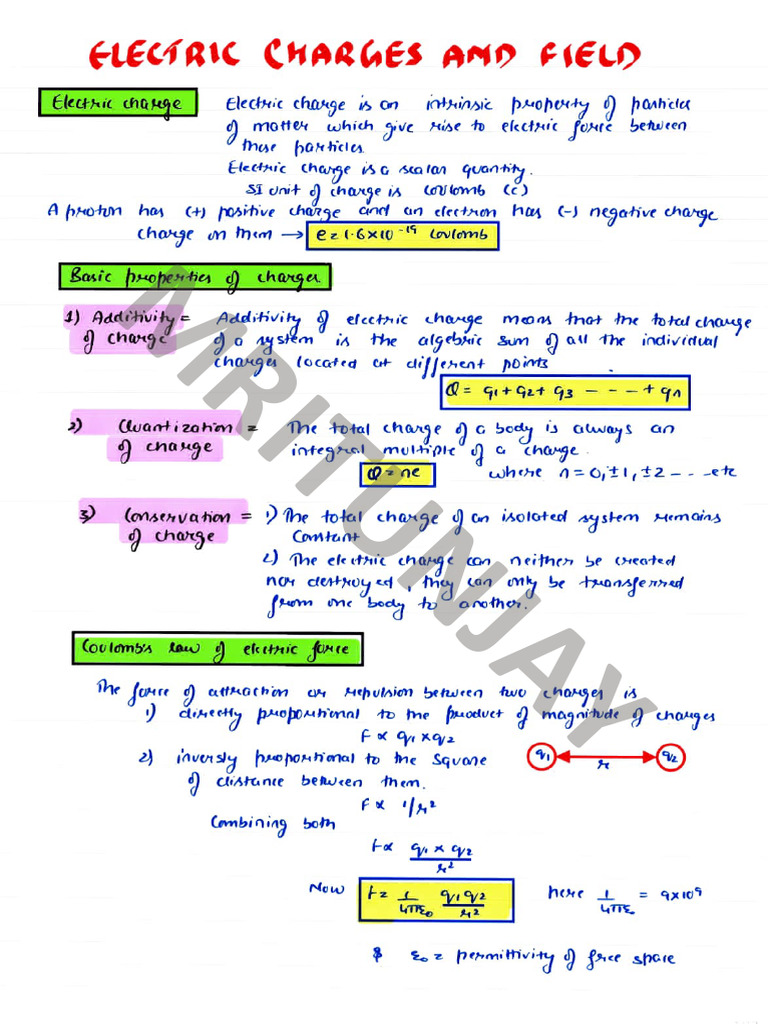 ELECTRIC CHARGES AND FIELD
Electric charge
Electric charge is an intrinsic property of particles
of matter which give rise to electric force between
these particles.
Electric charge is a scalar quantity.
SI unit of charge is coulomb (c)
A proton has (+) positive charge and an electron has (-) negative charge
charge on them → e = 1.6×10⁻¹⁹ coulomb
Basic properties of charges
1) Additivity of charge = Additivity of electric charge means that the total charge
of a system is the algebric sum of all the individual
charges located at different points.
Q = q₁+q₂+q₃ - - - - + qₙ
2) Quantization of charge = The total charge of a body is always an
integral multiple of a charge.
Q = ne where n = 0, ±1, ±2 - - - etc
3) Conservation of charge = 1) The total charge of an isolated system remains
constant
2) The electric charge can neither be created
nor destroyed, they can only be transferred
from one body to another.
Coulomb's law of electric force
The force of attraction or repulsion between two charges is
1) directly proportional to the product of magnitude of charges
F ∝ q₁×q₂
2) inversly proportional to the square
of distance between them.
q₁ r q₂
F ∝ 1/r²
Combining both
F ∝ q₁ × q₂ / r²
Now F = 1/4πε₀ q₁q₂/r² here 1/4πε₀ = 9×10⁹
& ε₀ = permittivity of free space
MRITUNJAY